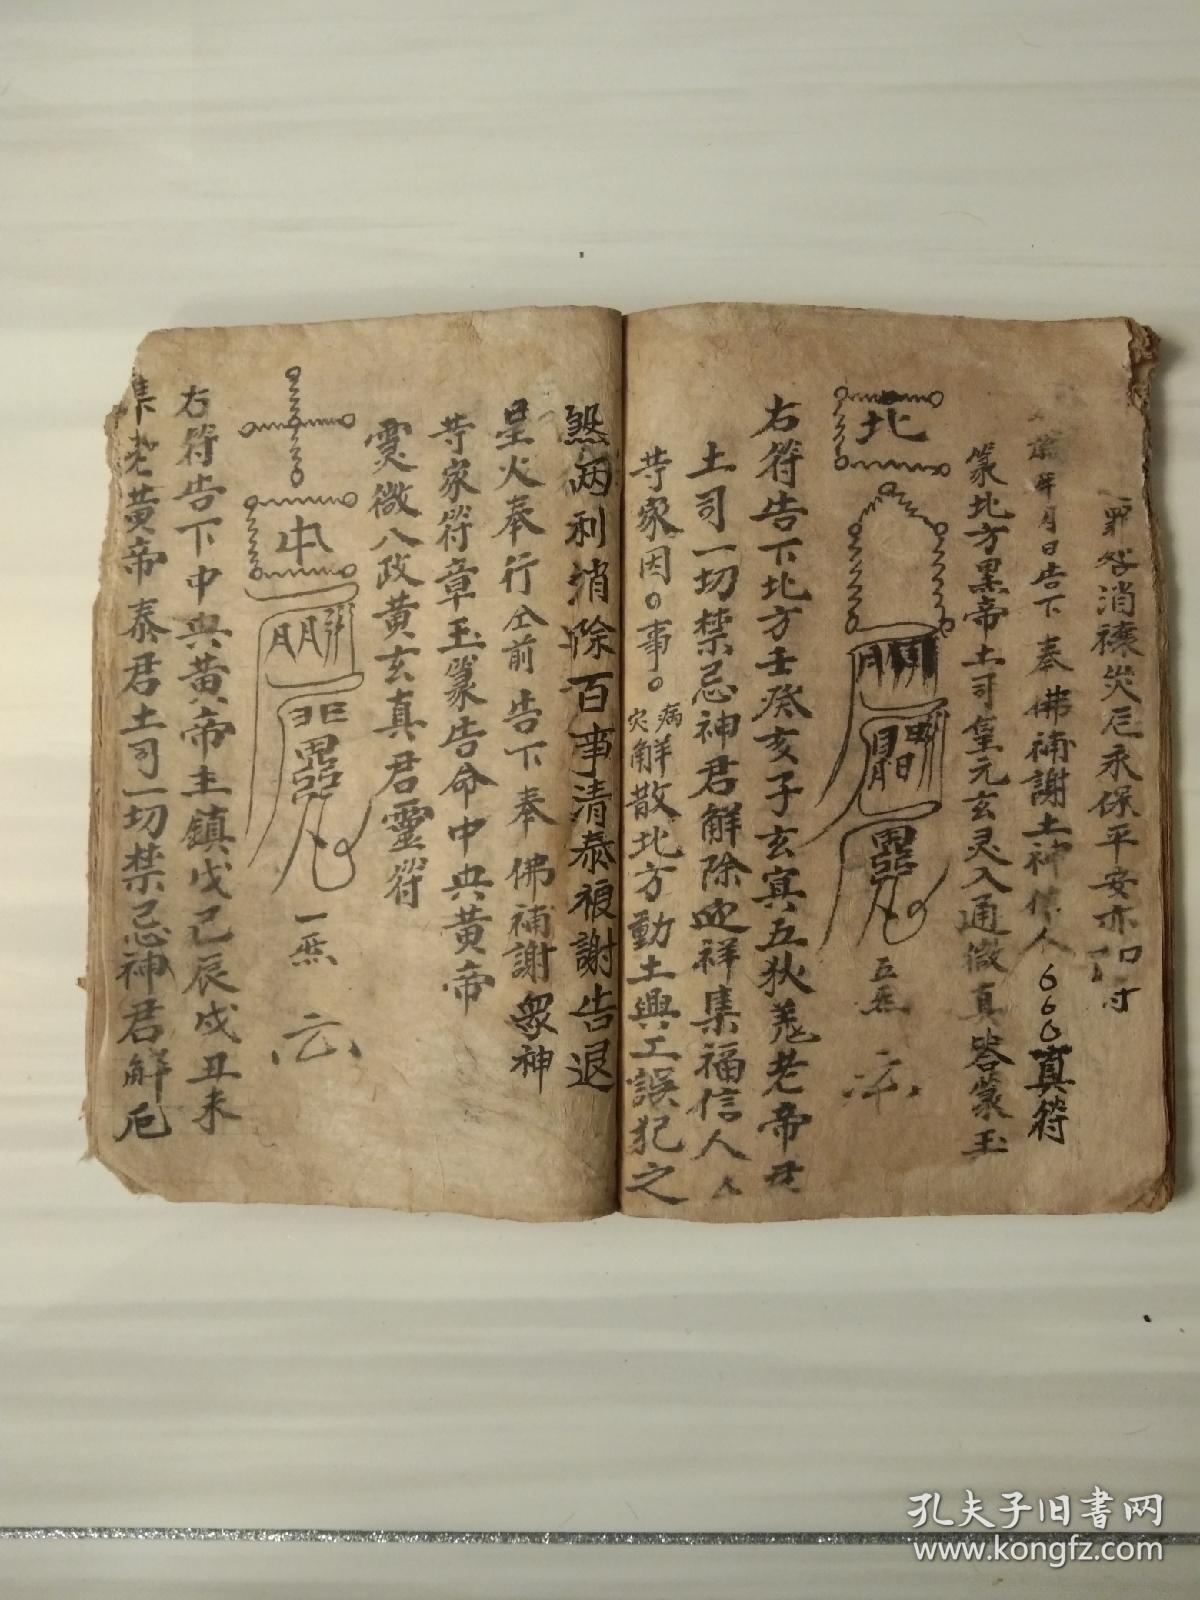 罪咎消禳災厄永保平安亦
年月日告下奉佛補謝土神信人ㄥ真符
篆北方黑帝土司皇元玄灵入通微真篆玉
北
五炁
右符告下北方壬癸亥子玄冥五狄羗老帝君
土司一切禁忌神君解除迎祥集福信人
䓁家因事病羊
災解散北方動土興工誤犯之
煞两利消除百事清泰禐謝告退
星火奉行仝前告下奉佛補謝衆神
䓁家符章玉篆告命中央黄帝
靈微八政黄玄真君靈符
一炁
右符告下中央黄帝主鎮戊己辰戌丑未
老黄帝泰君土司一切禁忌神君解厄
孔夫子旧书网
www.kongfz.com